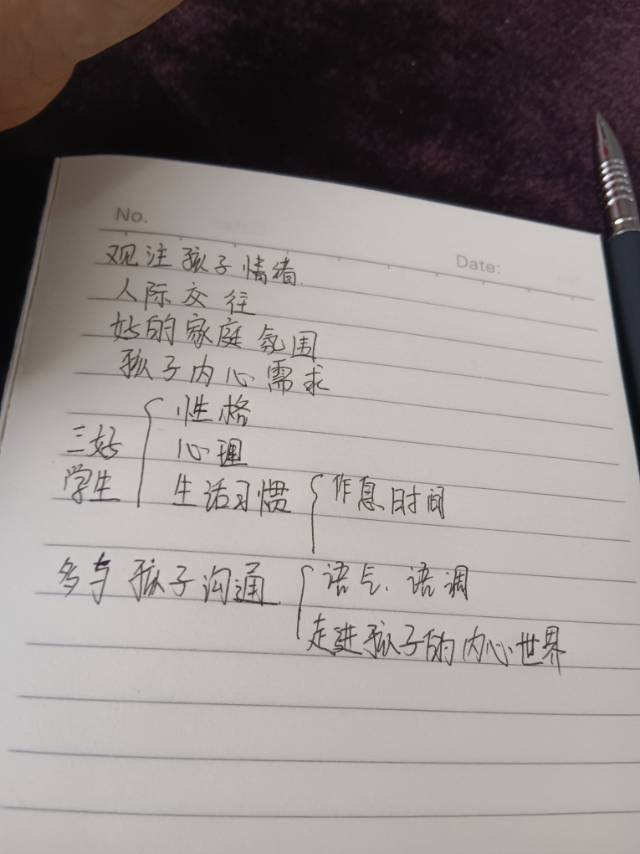 No.
Date:
观注孩子情绪
人际交往
好的家庭氛围
孩子内心需求
性格
三好
学生
心理
生活习惯
作息时间
多与孩子沟通
语气、语调
走进孩子的内心世界